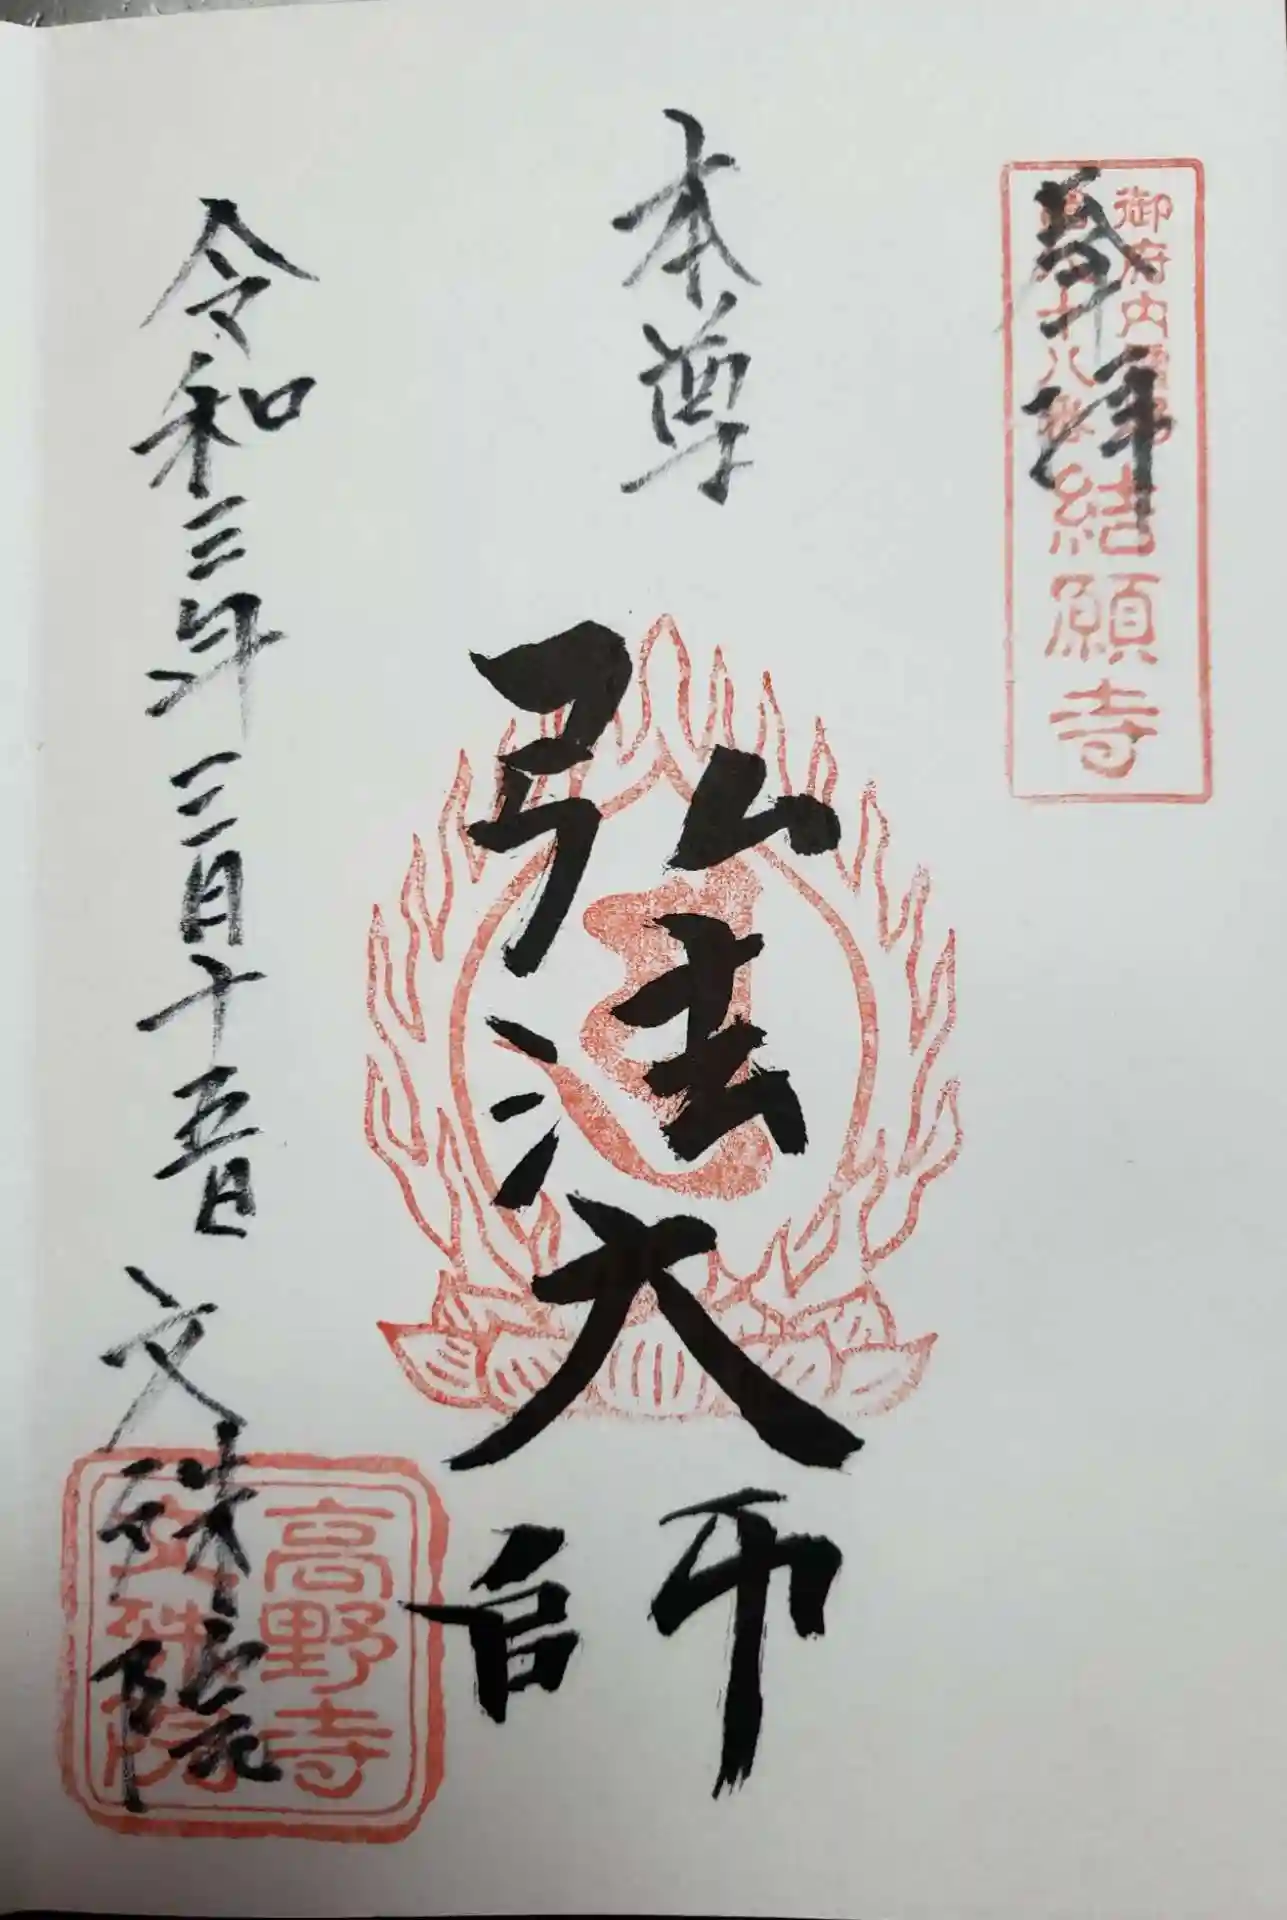 奉拝
御府内八十八ヶ所
第八十八番
結願寺
本尊
弘法大師
令和三年三月十五日
文殊院
高野寺
文殊院